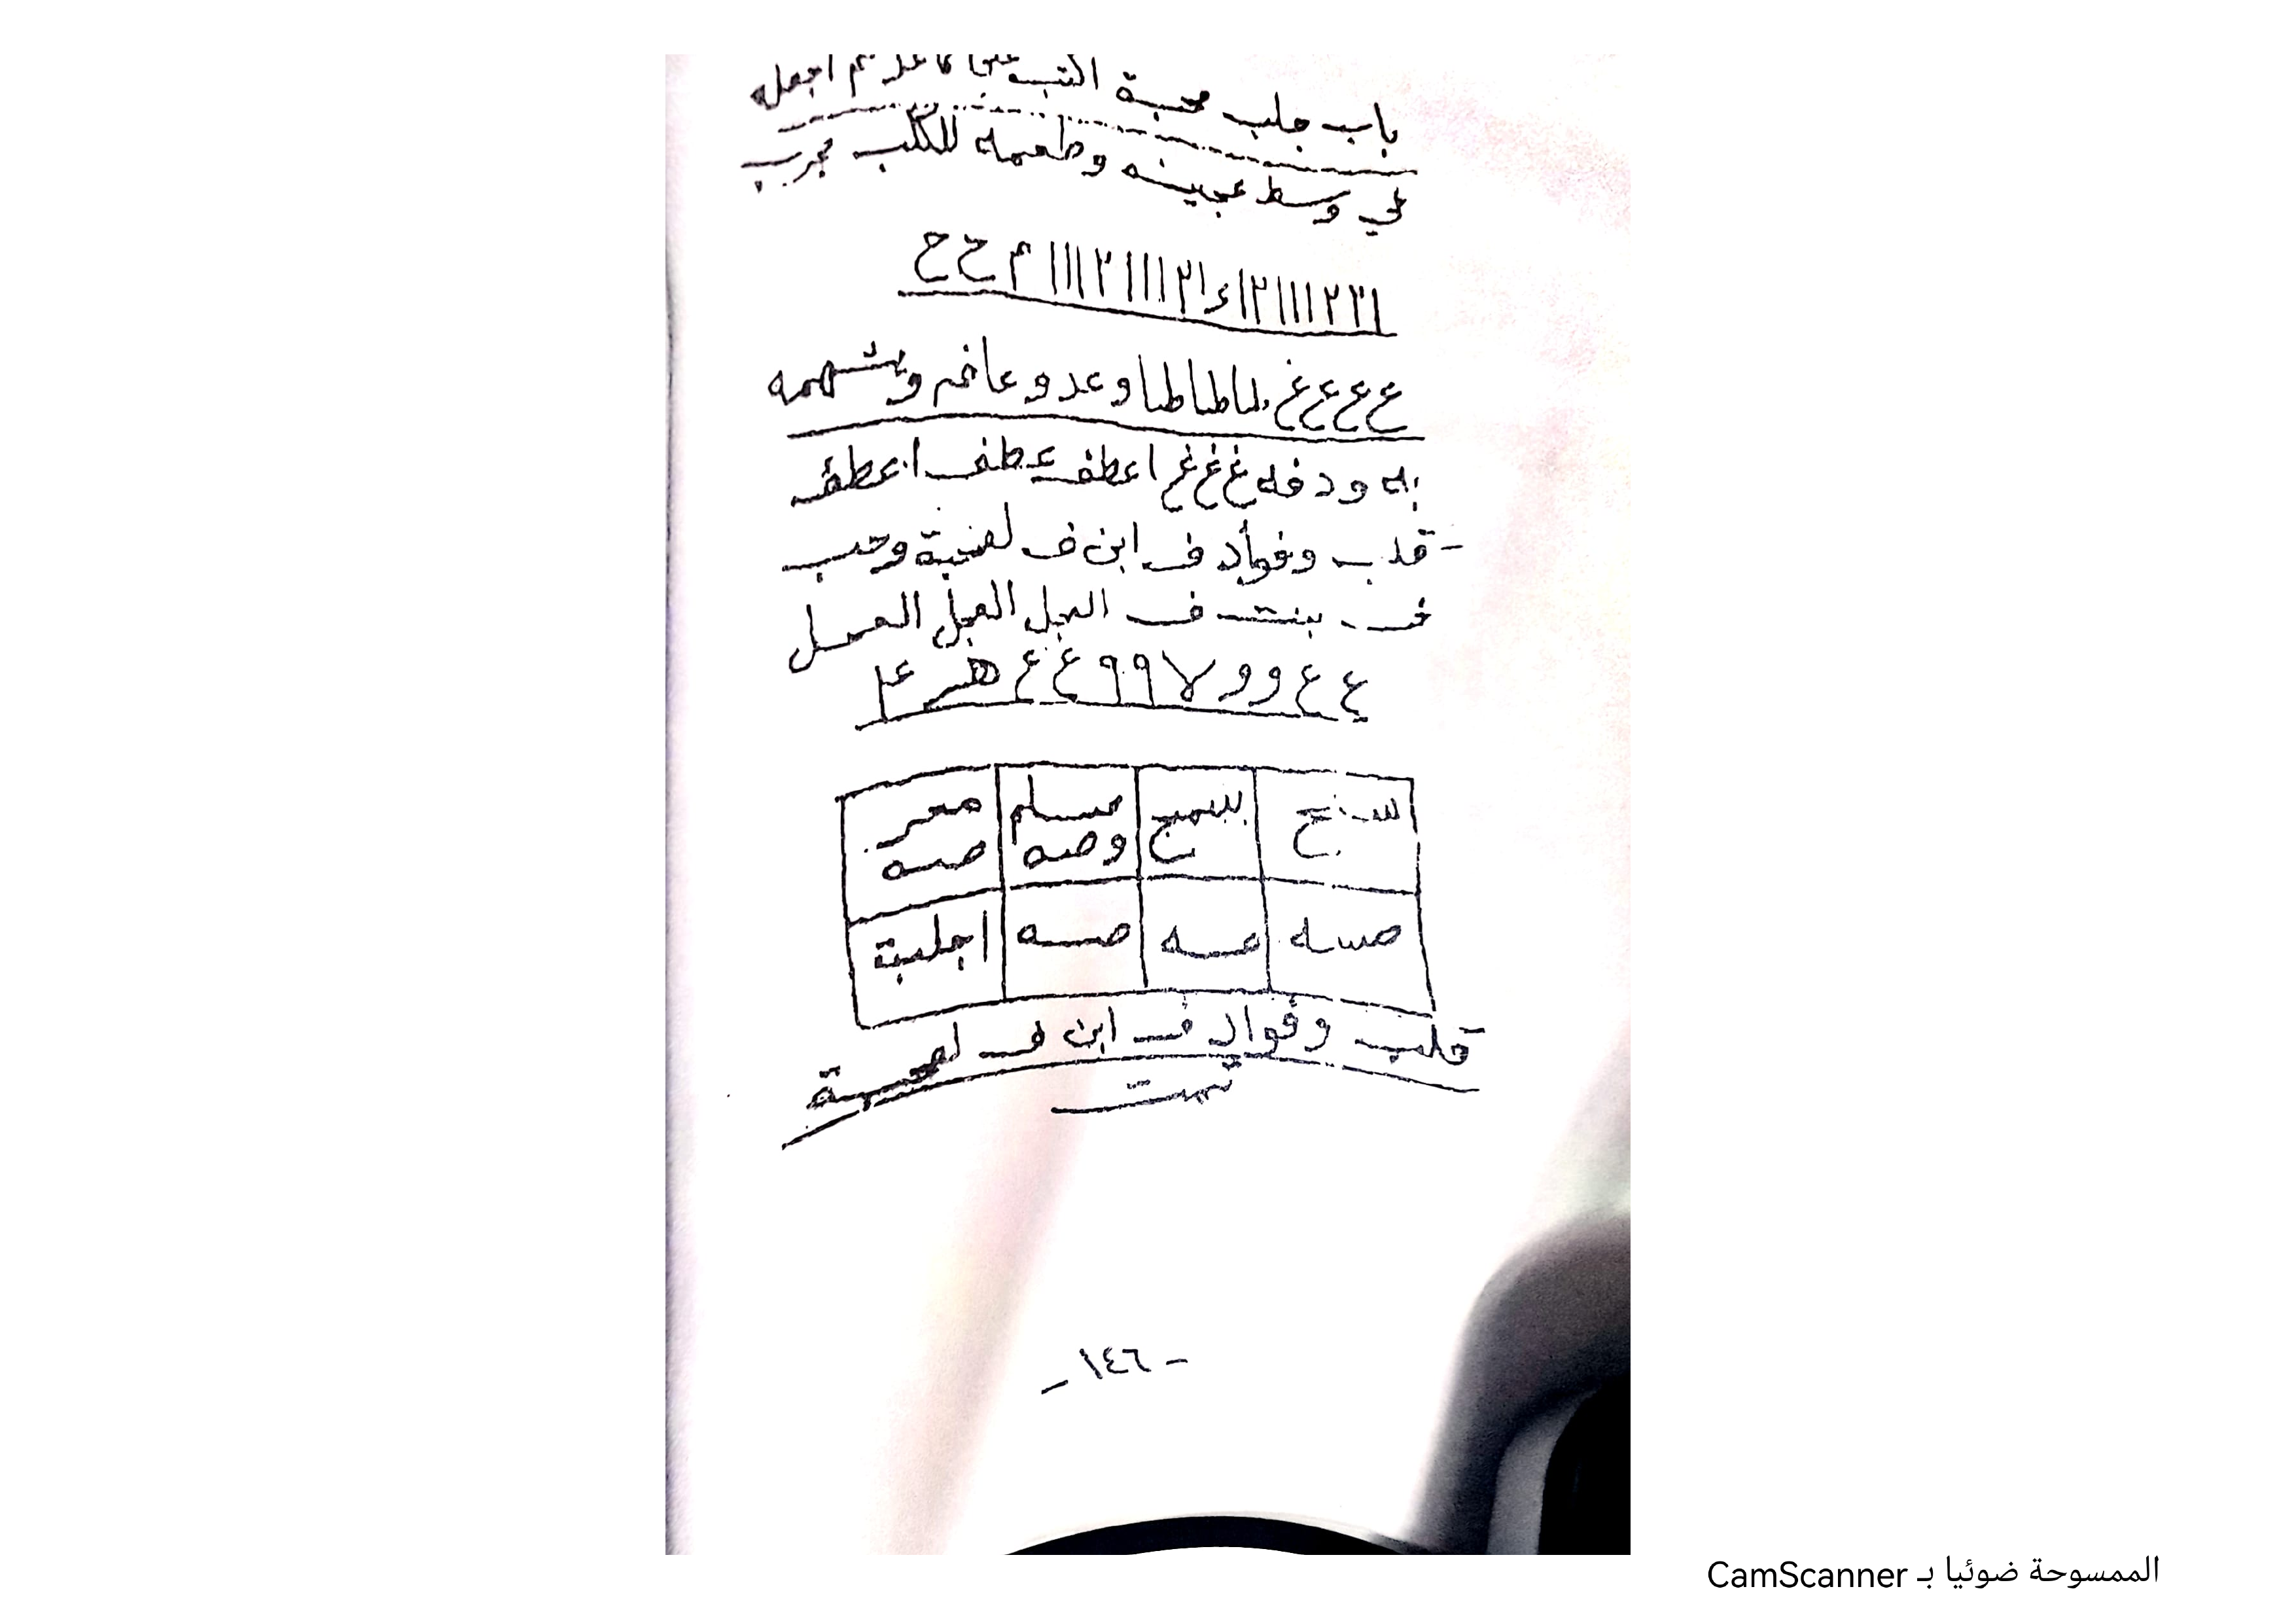 باب جلب محبة اكتب على كاغد ثم اجعله
في وسط عجينه وطعمه للكلب مجرب
١٣٢١١١١٢١ء١٢١١١١٢١١١١م ح ح
ع ع ع غ طاطاطا وعدو عا وشهمه
به ودفه غ غ غ غ اعطف عطف اعطف
قلب وفوأد ف ابن ف لمحبة وحب
ف بنت ف العجل العجل العجل
ع ع و و ٧ ٩ ٩ غ ع هـ
بسمج
مسلم وصه
معر صه
صسه
عسه
صسه
اجلبة
قلب وفواد ف ابن ف لمحبة
تمت
- ١٤٦ -
الممسوحة ضوئيا بـ CamScanner